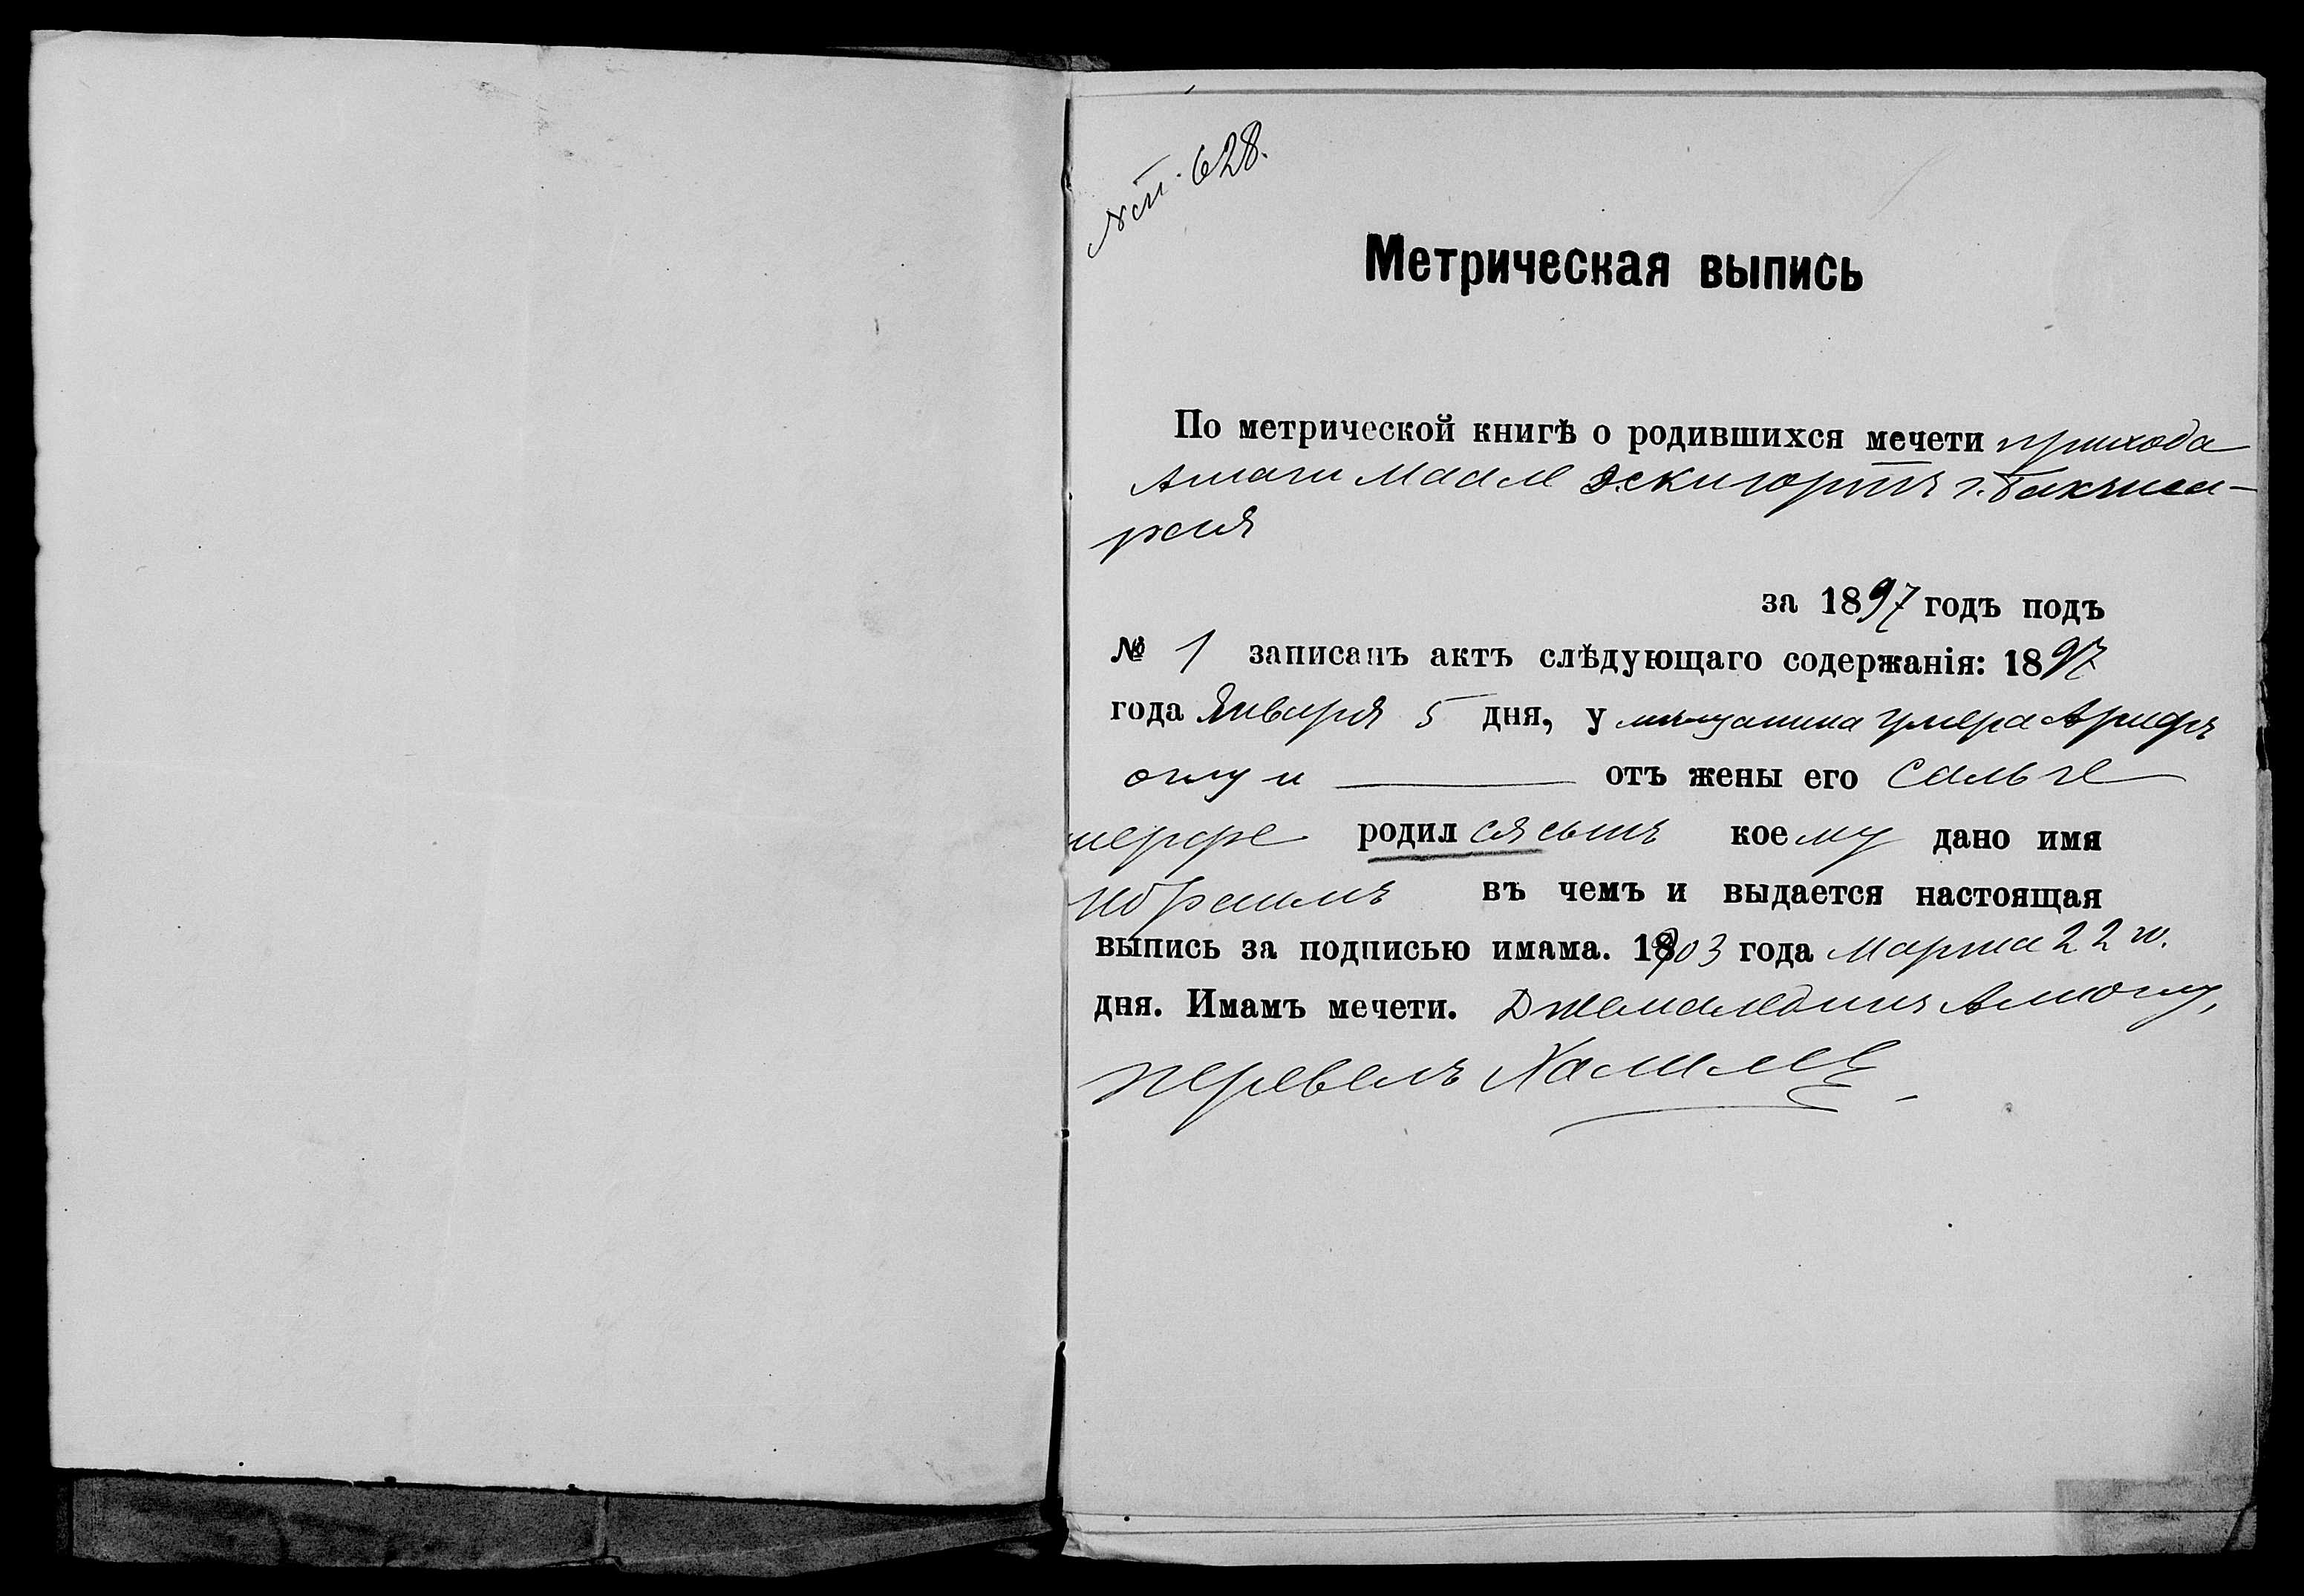 628.
Метрическая выпись
По метрической книгѣ о родившихся мечети прихода
Ашаги Маале Эскиюртъ г. Бахчиса-
рая
за 1897 годъ подъ
№ 1 записанъ актъ слѣдующаго содержанія: 1897
года Января 5 дня, у мѣщанина Умера Арифъ
оглу и отъ жены его Сальге
шерфе родился сынъ коему дано имя
Ибраимъ въ чемъ и выдается настоящая
выпись за подписью имама. 1903 года Марта 22 го.
дня. Имамъ мечети. Джемалединъ
перевелъ